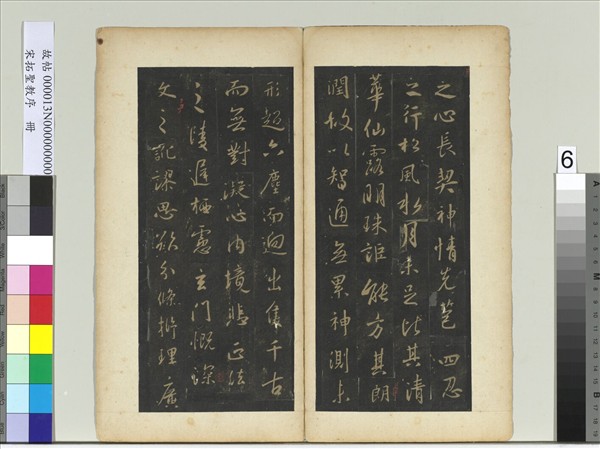 之心長契神情先苞四忍
之行松風水月未足比其清
華仙露明珠詎能方其朗
潤故以智通無累神測未
形超六塵而迥出隻千古
而無對凝心內境悲正法
之陵遲栖慮玄門慨深
文之訛謬思欲分條析理廣
故帖 000013N000000000
宋拓聖教序 冊
6